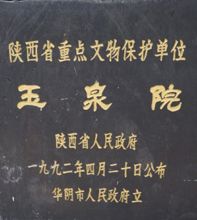 陕西省重点文物保护单位
玉泉院
陕西省人民政府
一九九二年四月二十日公布
华阴市人民政府立